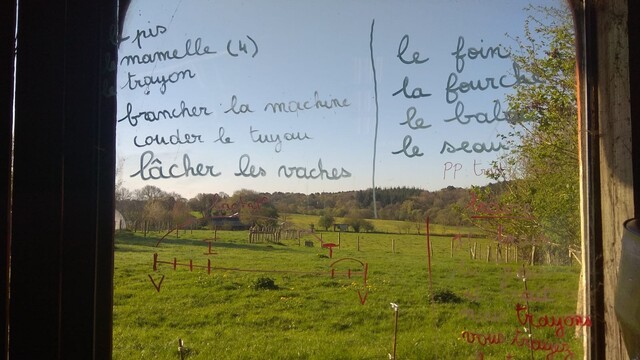 - pis
mamelle (4)
trayon
brancher la machine
couder le tuyau
lâcher les vaches
le foin
la fourche
le balai
le seau
pp
trayons
vous